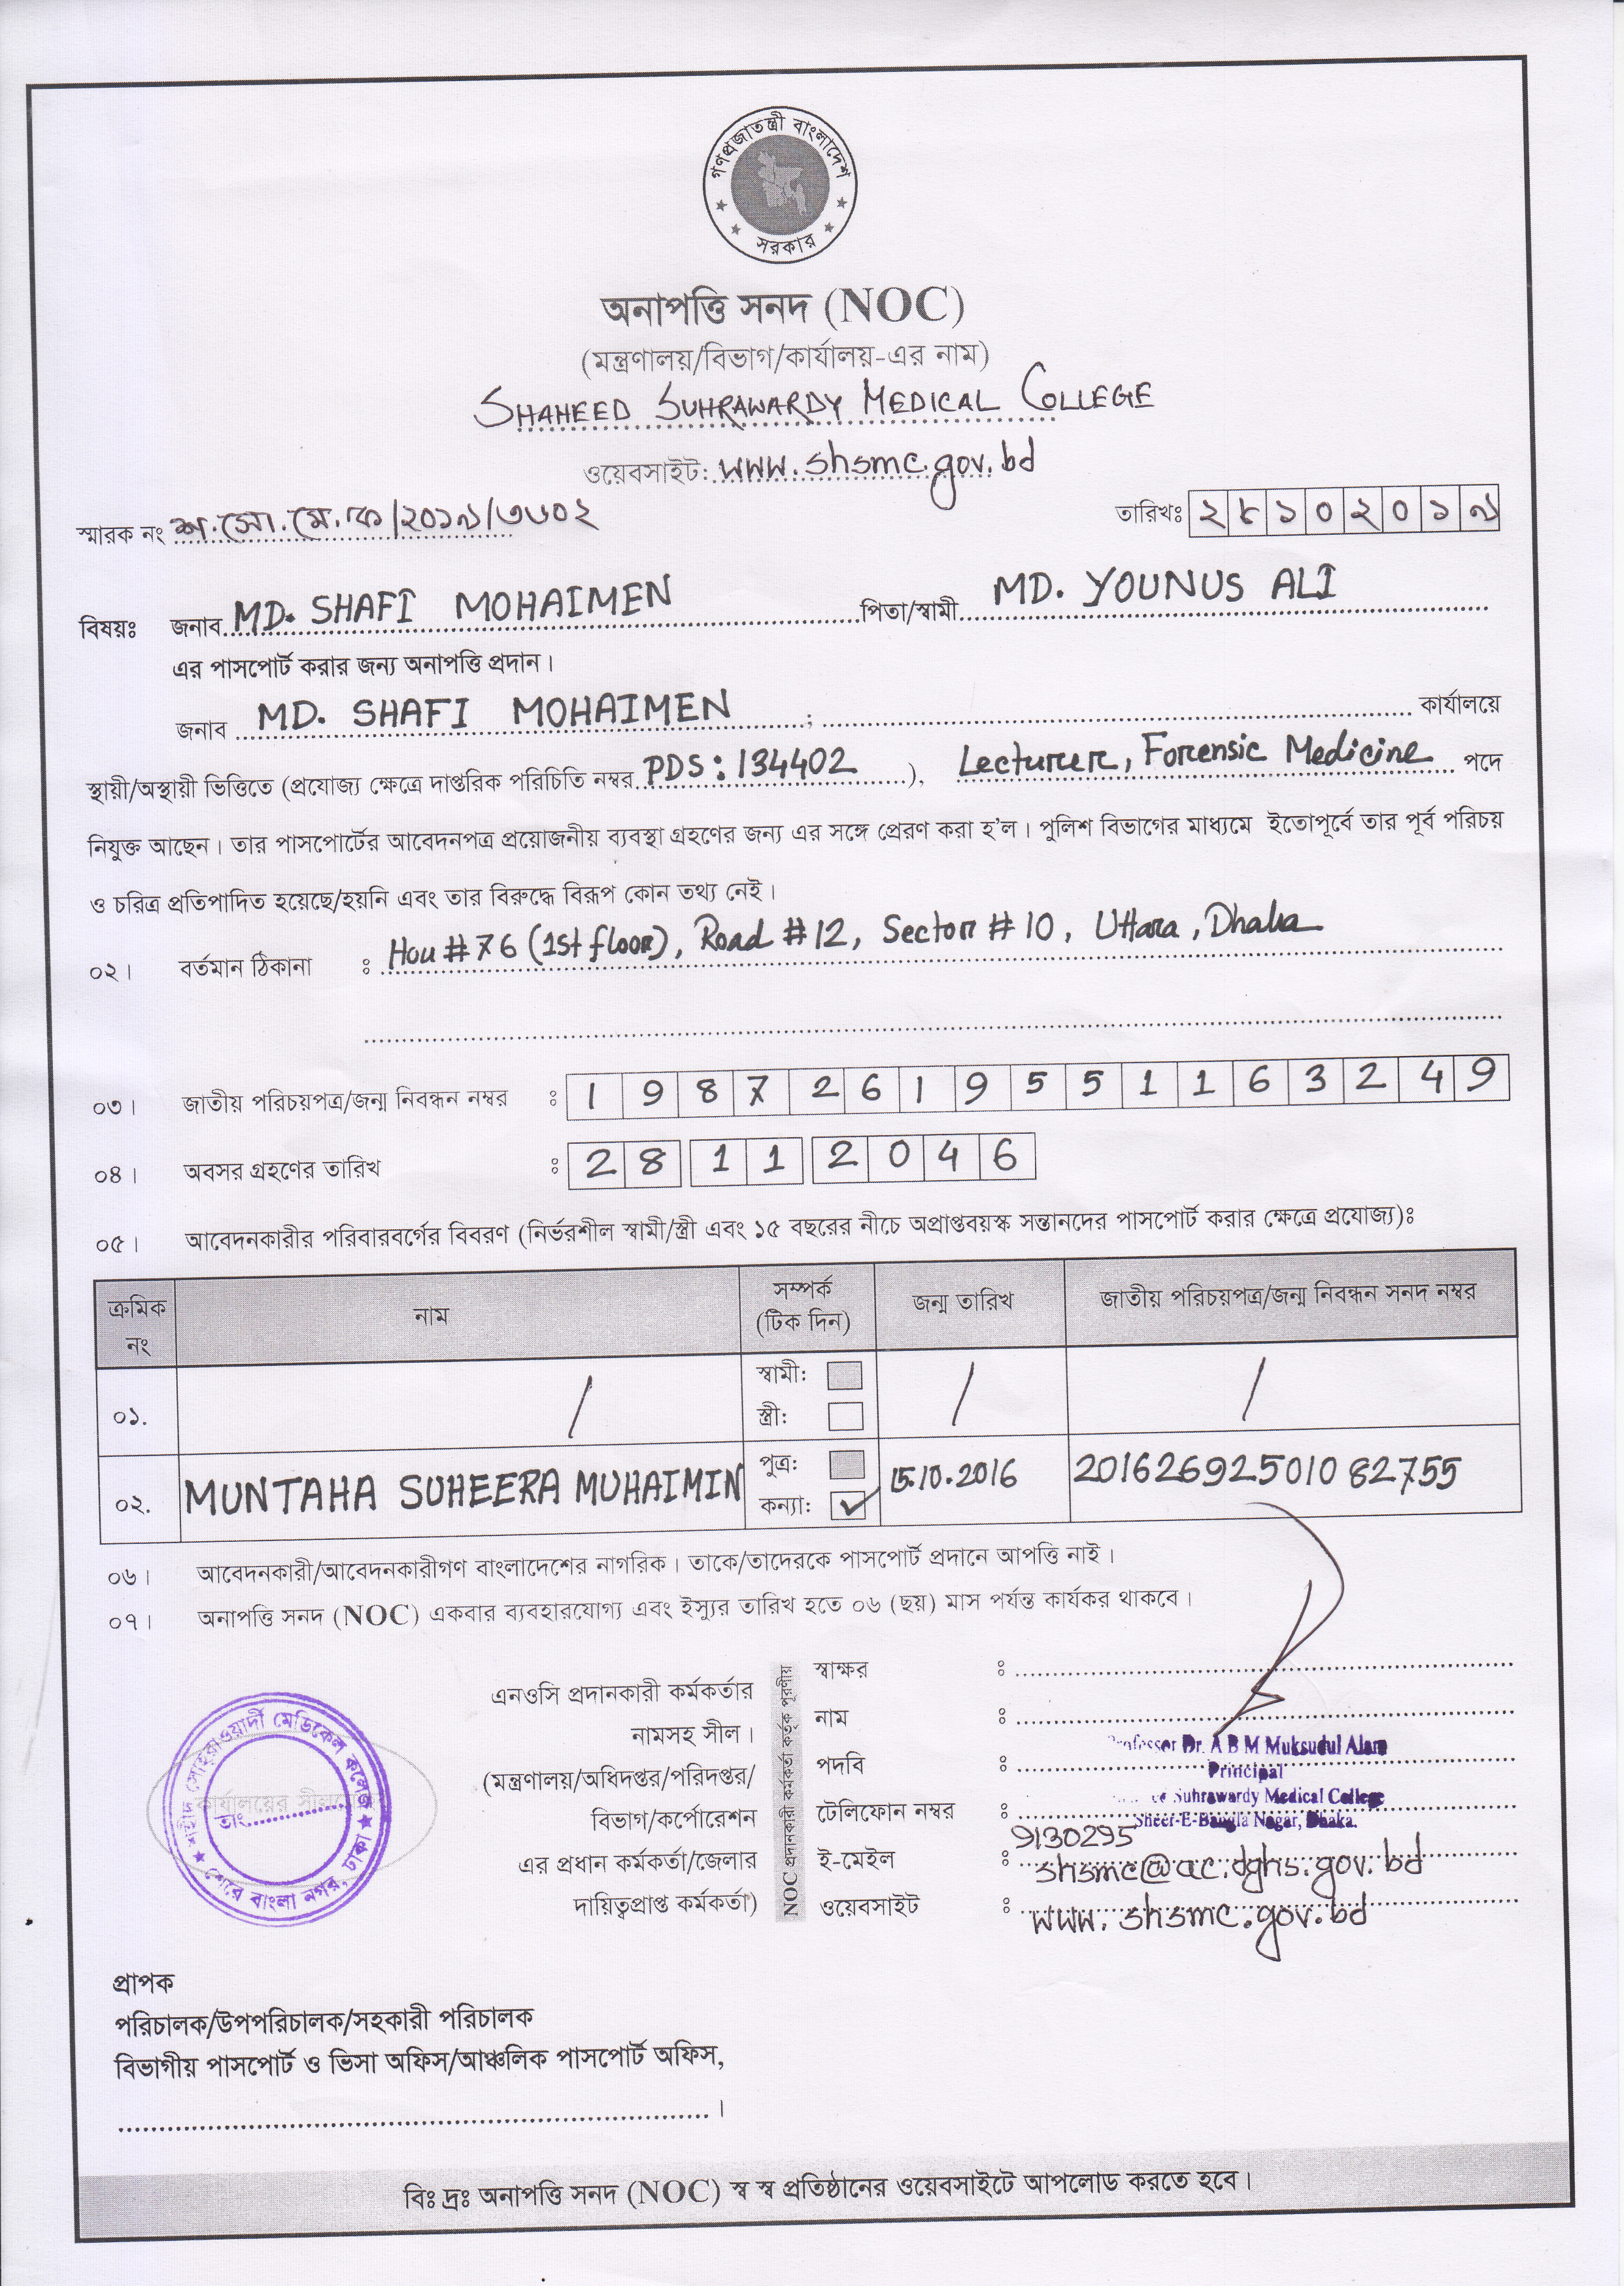 গণপ্রজাতন্ত্রী বাংলাদেশ
সরকার
অনাপত্তি সনদ (NOC)
(মন্ত্রণালয়/বিভাগ/কার্যালয়-এর নাম)
SHAHEED SUHRAWARDY MEDICAL COLLEGE
ওয়েবসাইট: www.shsmc.gov.bd
স্মারক নং শ.সো.মে.ক/২০১৯/৩৬০২ তারিখঃ ২৮১০২০১৯
বিষয়ঃ জনাব MD. SHAFI MOHAIMEN পিতা/স্বামী MD. YOUNUS ALI
এর পাসপোর্ট করার জন্য অনাপত্তি প্রদান।
জনাব MD. SHAFI MOHAIMEN ; কার্যালয়ে
স্থায়ী/অস্থায়ী ভিত্তিতে (প্রযোজ্য ক্ষেত্রে দাপ্তরিক পরিচিতি নম্বর PDS: 134402 ), Lecturer, Forensic Medicine পদে
নিযুক্ত আছেন। তার পাসপোর্টের আবেদনপত্র প্রয়োজনীয় ব্যবস্থা গ্রহণের জন্য এর সঙ্গে প্রেরণ করা হ'ল। পুলিশ বিভাগের মাধ্যমে ইতোপূর্বে তার পূর্ব পরিচয়
ও চরিত্র প্রতিপাদিত হয়েছে/হয়নি এবং তার বিরুদ্ধে বিরূপ কোন তথ্য নেই।
০২। বর্তমান ঠিকানা : Hou # 76 (1st floor), Road # 12, Sector # 10, Uttara, Dhaka
০৩। জাতীয় পরিচয়পত্র/জন্ম নিবন্ধন নম্বর : 19872619551163249
০৪। অবসর গ্রহণের তারিখ : 28 11 2046
০৫। আবেদনকারীর পরিবারবর্গের বিবরণ (নির্ভরশীল স্বামী/স্ত্রী এবং ১৫ বছরের নীচে অপ্রাপ্তবয়স্ক সন্তানদের পাসপোর্ট করার ক্ষেত্রে প্রযোজ্য)ঃ
ক্রমিক নং নাম সম্পর্ক (টিক দিন) জন্ম তারিখ জাতীয় পরিচয়পত্র/জন্ম নিবন্ধন সনদ নম্বর
০১. / স্বামী: / /
স্ত্রী:
০২. MUNTAHA SUHEERA MUHAIMIN পুত্র: 15.10.2016 20162692501082755
কন্যা: ✓
০৬। আবেদনকারী/আবেদনকারীগণ বাংলাদেশের নাগরিক। তাকে/তাদেরকে পাসপোর্ট প্রদানে আপত্তি নাই।
০৭। অনাপত্তি সনদ (NOC) একবার ব্যবহারযোগ্য এবং ইস্যুর তারিখ হতে ০৬ (ছয়) মাস পর্যন্ত কার্যকর থাকবে।
শহীদ সোহরাওয়ার্দী মেডিকেল কলেজ
কার্যালয়ের সীল
তাং
শেরে বাংলা নগর, ঢাকা
এনওসি প্রদানকারী কর্মকর্তার
নামসহ সীল।
(মন্ত্রণালয়/অধিদপ্তর/পরিদপ্তর/
বিভাগ/কর্পোরেশন
এর প্রধান কর্মকর্তা/জেলার
দায়িত্বপ্রাপ্ত কর্মকর্তা)
NOC প্রদানকারী কর্মকর্তা কর্তৃক পূরণীয়
স্বাক্ষর :
নাম :
Professor Dr. A B M Muksudul Alam
পদবি :
Principal
Suhrawardy Medical College
টেলিফোন নম্বর :
Sheer-E-Bangla Nagar, Dhaka.
9130295
ই-মেইল : shsmc@ac.dghs.gov.bd
ওয়েবসাইট : www.shsmc.gov.bd
প্রাপক
পরিচালক/উপপরিচালক/সহকারী পরিচালক
বিভাগীয় পাসপোর্ট ও ভিসা অফিস/আঞ্চলিক পাসপোর্ট অফিস,
।
বিঃ দ্রঃ অনাপত্তি সনদ (NOC) স্ব স্ব প্রতিষ্ঠানের ওয়েবসাইটে আপলোড করতে হবে।